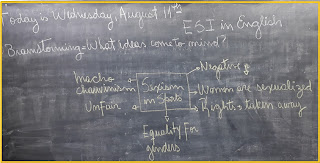 Today is Wednesday, August 11th
ESI in English
Brainstorming - What ideas come to mind?
Negative
Macho
chauvinism
Sexism
in Sports
Women are sexualized
UnFair
Rights → taken away
Equality For
genders